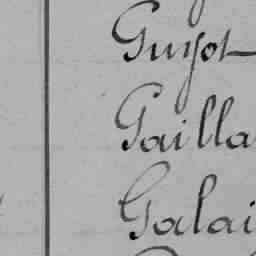 Guyot
Gailla
Galai